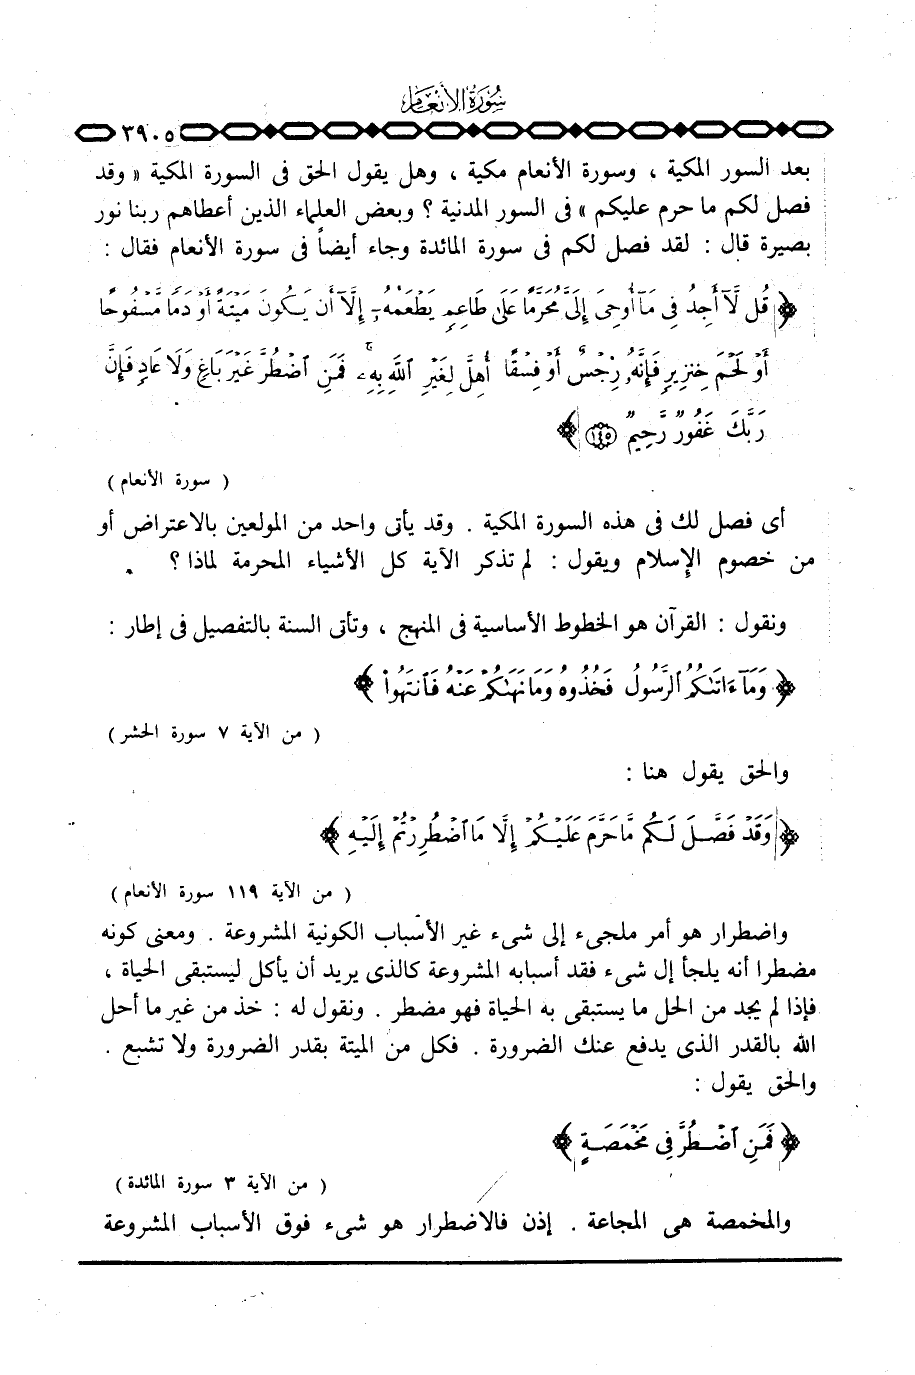 سورة الأنعام
٣٩٠٥
بعد السور المكية ، وسورة الأنعام مكية ، وهل يقول الحق فى السورة المكية « وقد
فصل لكم ما حرم عليكم » فى السور المدنية ؟ وبعض العلماء الذين أعطاهم ربنا نور
بصيرة قال : لقد فصل لكم فى سورة المائدة وجاء أيضاً فى سورة الأنعام فقال :
﴿ قُل لَّآ أَجِدُ فِى مَآ أُوحِىَ إِلَىَّ مُحَرَّمًا عَلَىٰ طَاعِمٍ يَطْعَمُهُۥٓ إِلَّآ أَن يَكُونَ مَيْتَةً أَوْ دَمًا مَّسْفُوحًا
أَوْ لَحْمَ خِنزِيرٍ فَإِنَّهُۥ رِجْسٌ أَوْ فِسْقًا أُهِلَّ لِغَيْرِ ٱللَّهِ بِهِۦ ۚ فَمَنِ ٱضْطُرَّ غَيْرَ بَاغٍ وَلَا عَادٍ فَإِنَّ
رَبَّكَ غَفُورٌ رَّحِيمٌ ١٤٥ ﴾
( سورة الأنعام )
أى فصل لك فى هذه السورة المكية . وقد يأتى واحد من المولعين بالاعتراض أو
من خصوم الإسلام ويقول : لم تذكر الآية كل الأشياء المحرمة لماذا ؟ .
ونقول : القرآن هو الخطوط الأساسية فى المنهج ، وتأتى السنة بالتفصيل فى إطار :
﴿ وَمَآ ءَاتَىٰكُمُ ٱلرَّسُولُ فَخُذُوهُ وَمَا نَهَىٰكُمْ عَنْهُ فَٱنتَهُوا۟ ﴾
( من الآية ٧ سورة الحشر )
والحق يقول هنا :
﴿ وَقَدْ فَصَّلَ لَكُم مَّا حَرَّمَ عَلَيْكُمْ إِلَّا مَا ٱضْطُرِرْتُمْ إِلَيْهِ ﴾
( من الآية ١١٩ سورة الأنعام )
واضطرار هو أمر ملجىء إلى شىء غير الأسباب الكونية المشروعة . ومعنى كونه
مضطرا أنه يلجأ إل شىء فقد أسبابه المشروعة كالذى يريد أن يأكل ليستبقى الحياة ،
فإذا لم يجد من الحل ما يستبقى به الحياة فهو مضطر . ونقول له : خذ من غير ما أحل
الله بالقدر الذى يدفع عنك الضرورة . فكل من الميتة بقدر الضرورة ولا تشبع .
والحق يقول :
﴿ فَمَنِ ٱضْطُرَّ فِى مَخْمَصَةٍ ﴾
( من الآية ٣ سورة المائدة )
والمخمصة هى المجاعة . إذن فالاضطرار هو شىء فوق الأسباب المشروعة